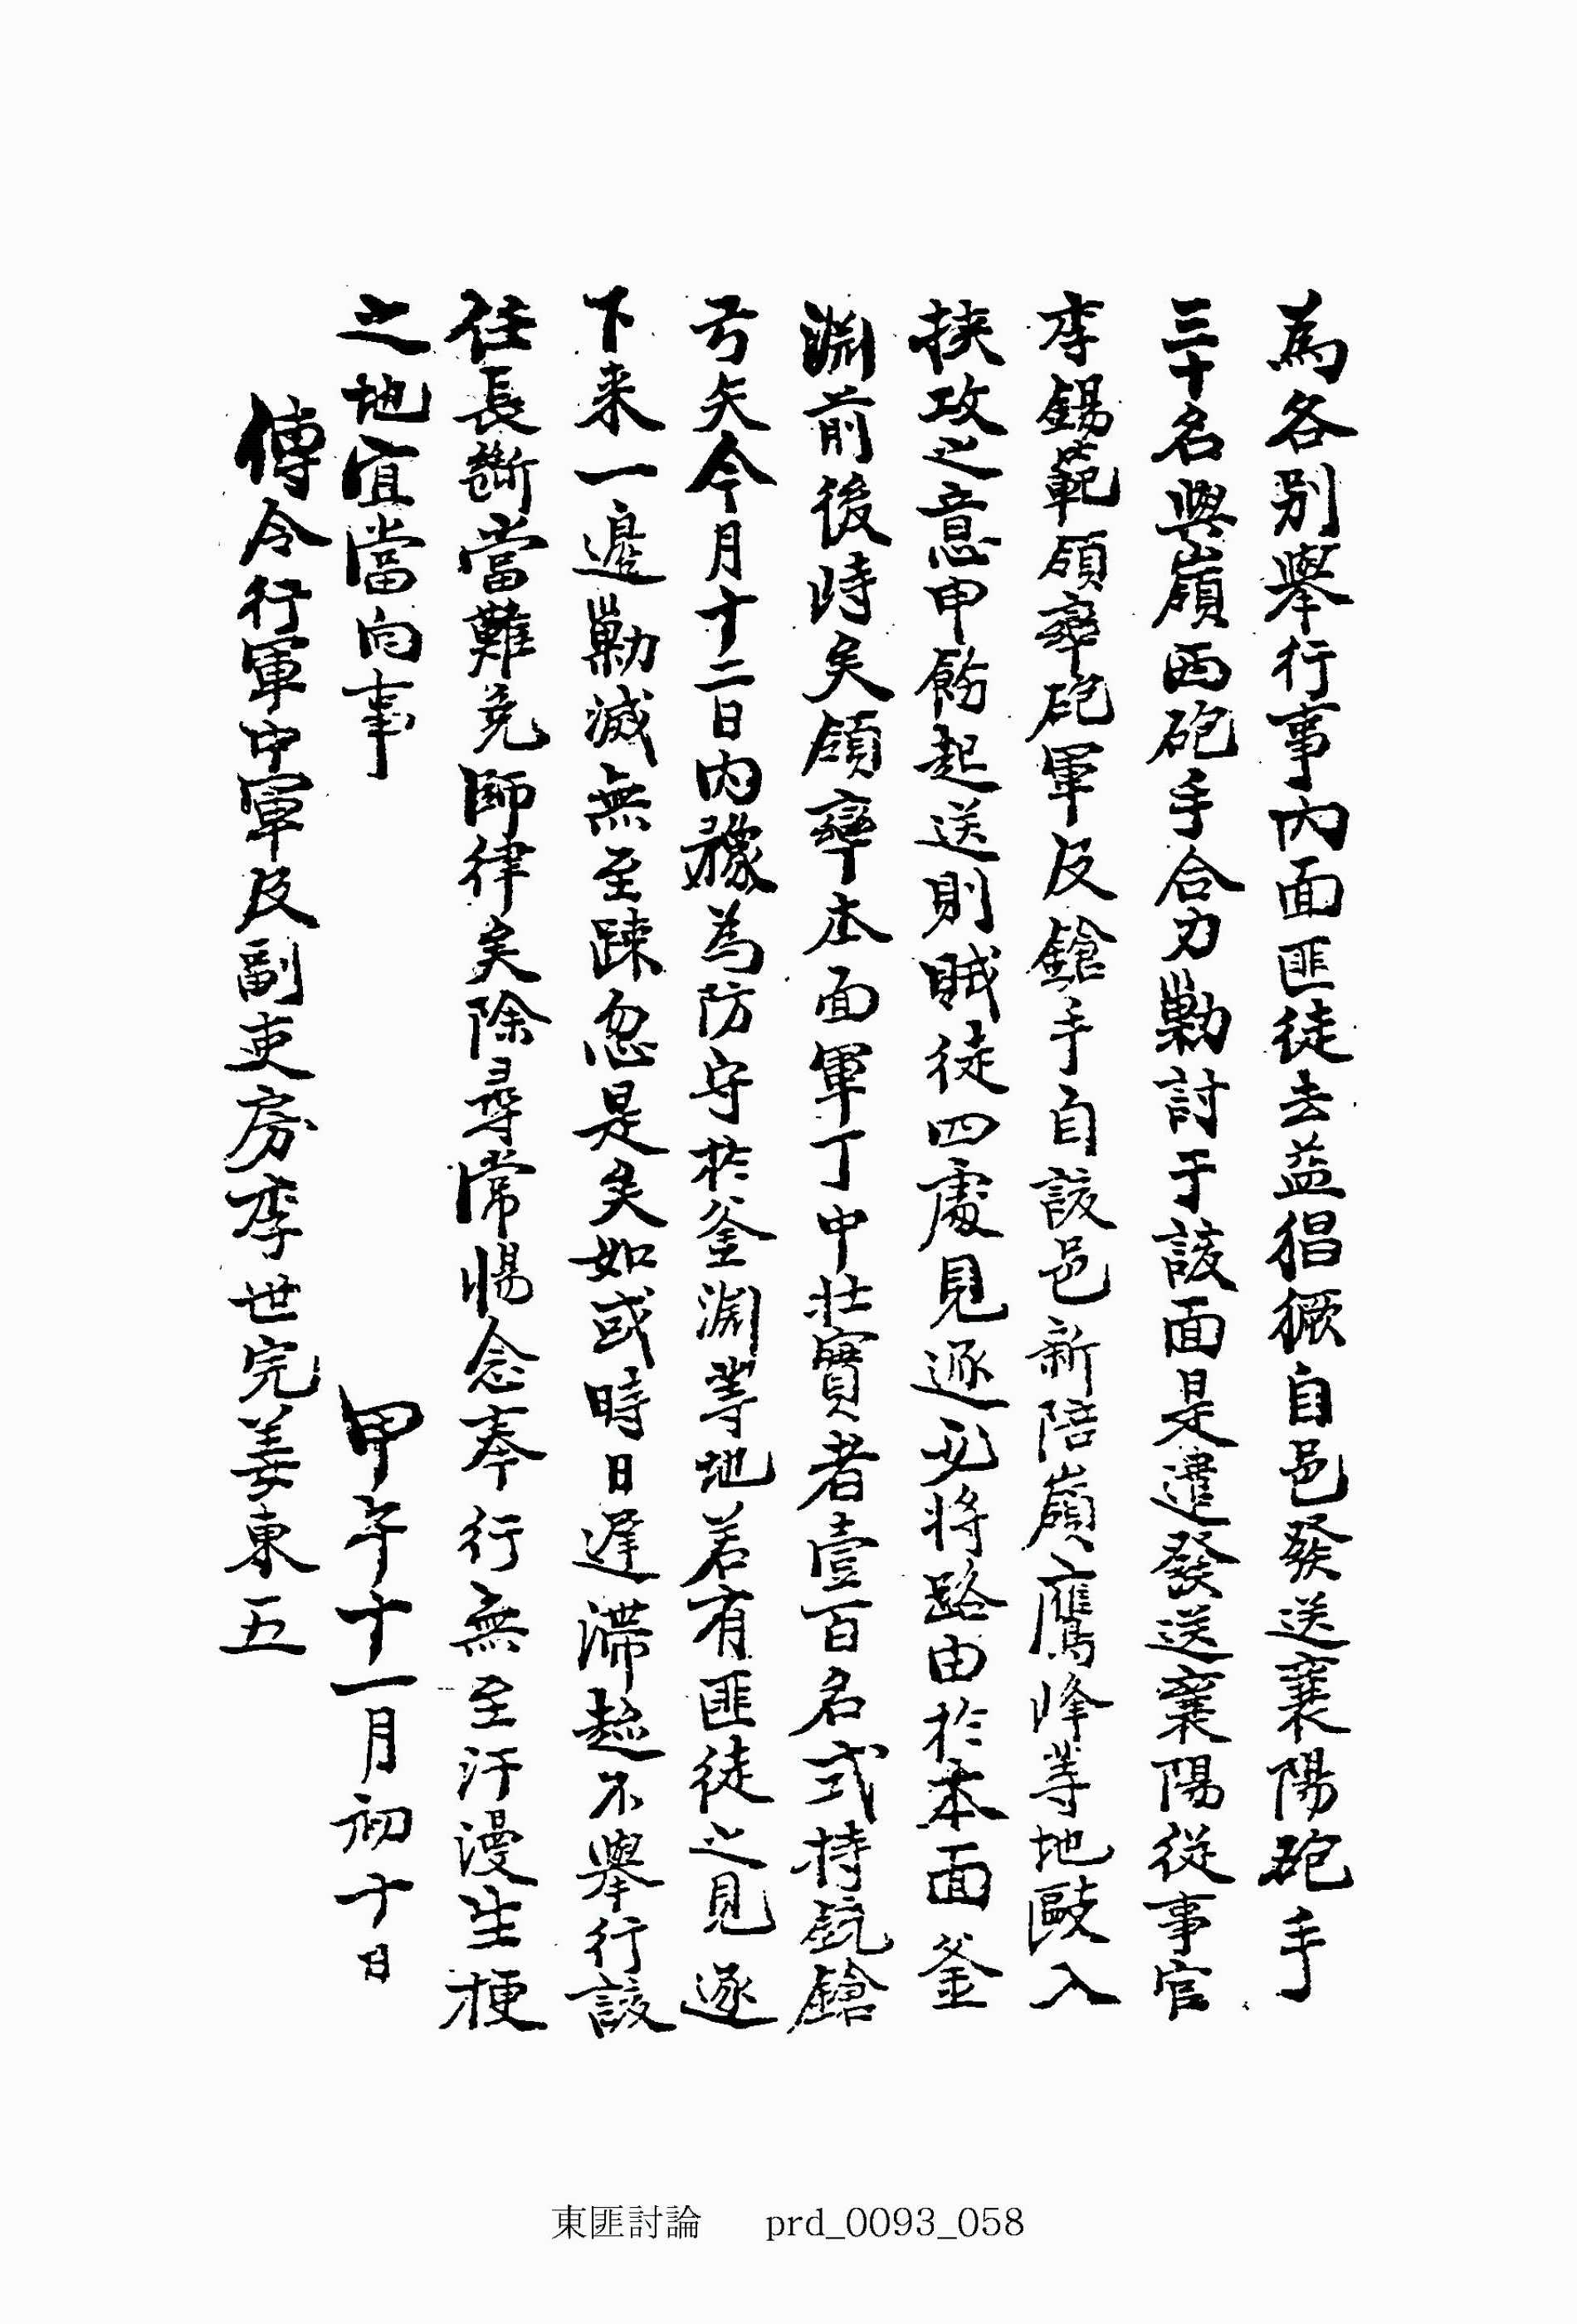 為各別擧行事內面匪徒去益猖獗自邑發送襄陽砲手
三十名與嶺西砲手合力勦討于該面是遣發送襄陽從事官
李錫範領率砲軍及鎗手自該邑新陪嶺鷹峰等地敺入
挾攻之意申飭起送則賊徒四處見逐必將路由於本面釜
淵前後時矣領率本面軍丁中壯實者壹百名式持銃鎗
弓矢今月十二日內豫為防守於釜淵等地若有匪徒之見逐
下来一邊勦滅無至踈忽是矣如或時日遲滯趂不擧行該
任長斷當難免師律矣除尋常惕念奉行無至汗漫生梗
之地宜當向事
甲午十一月初十日
傳令行軍中軍及副吏房李世完姜東五
東匪討論 prd_0093_058